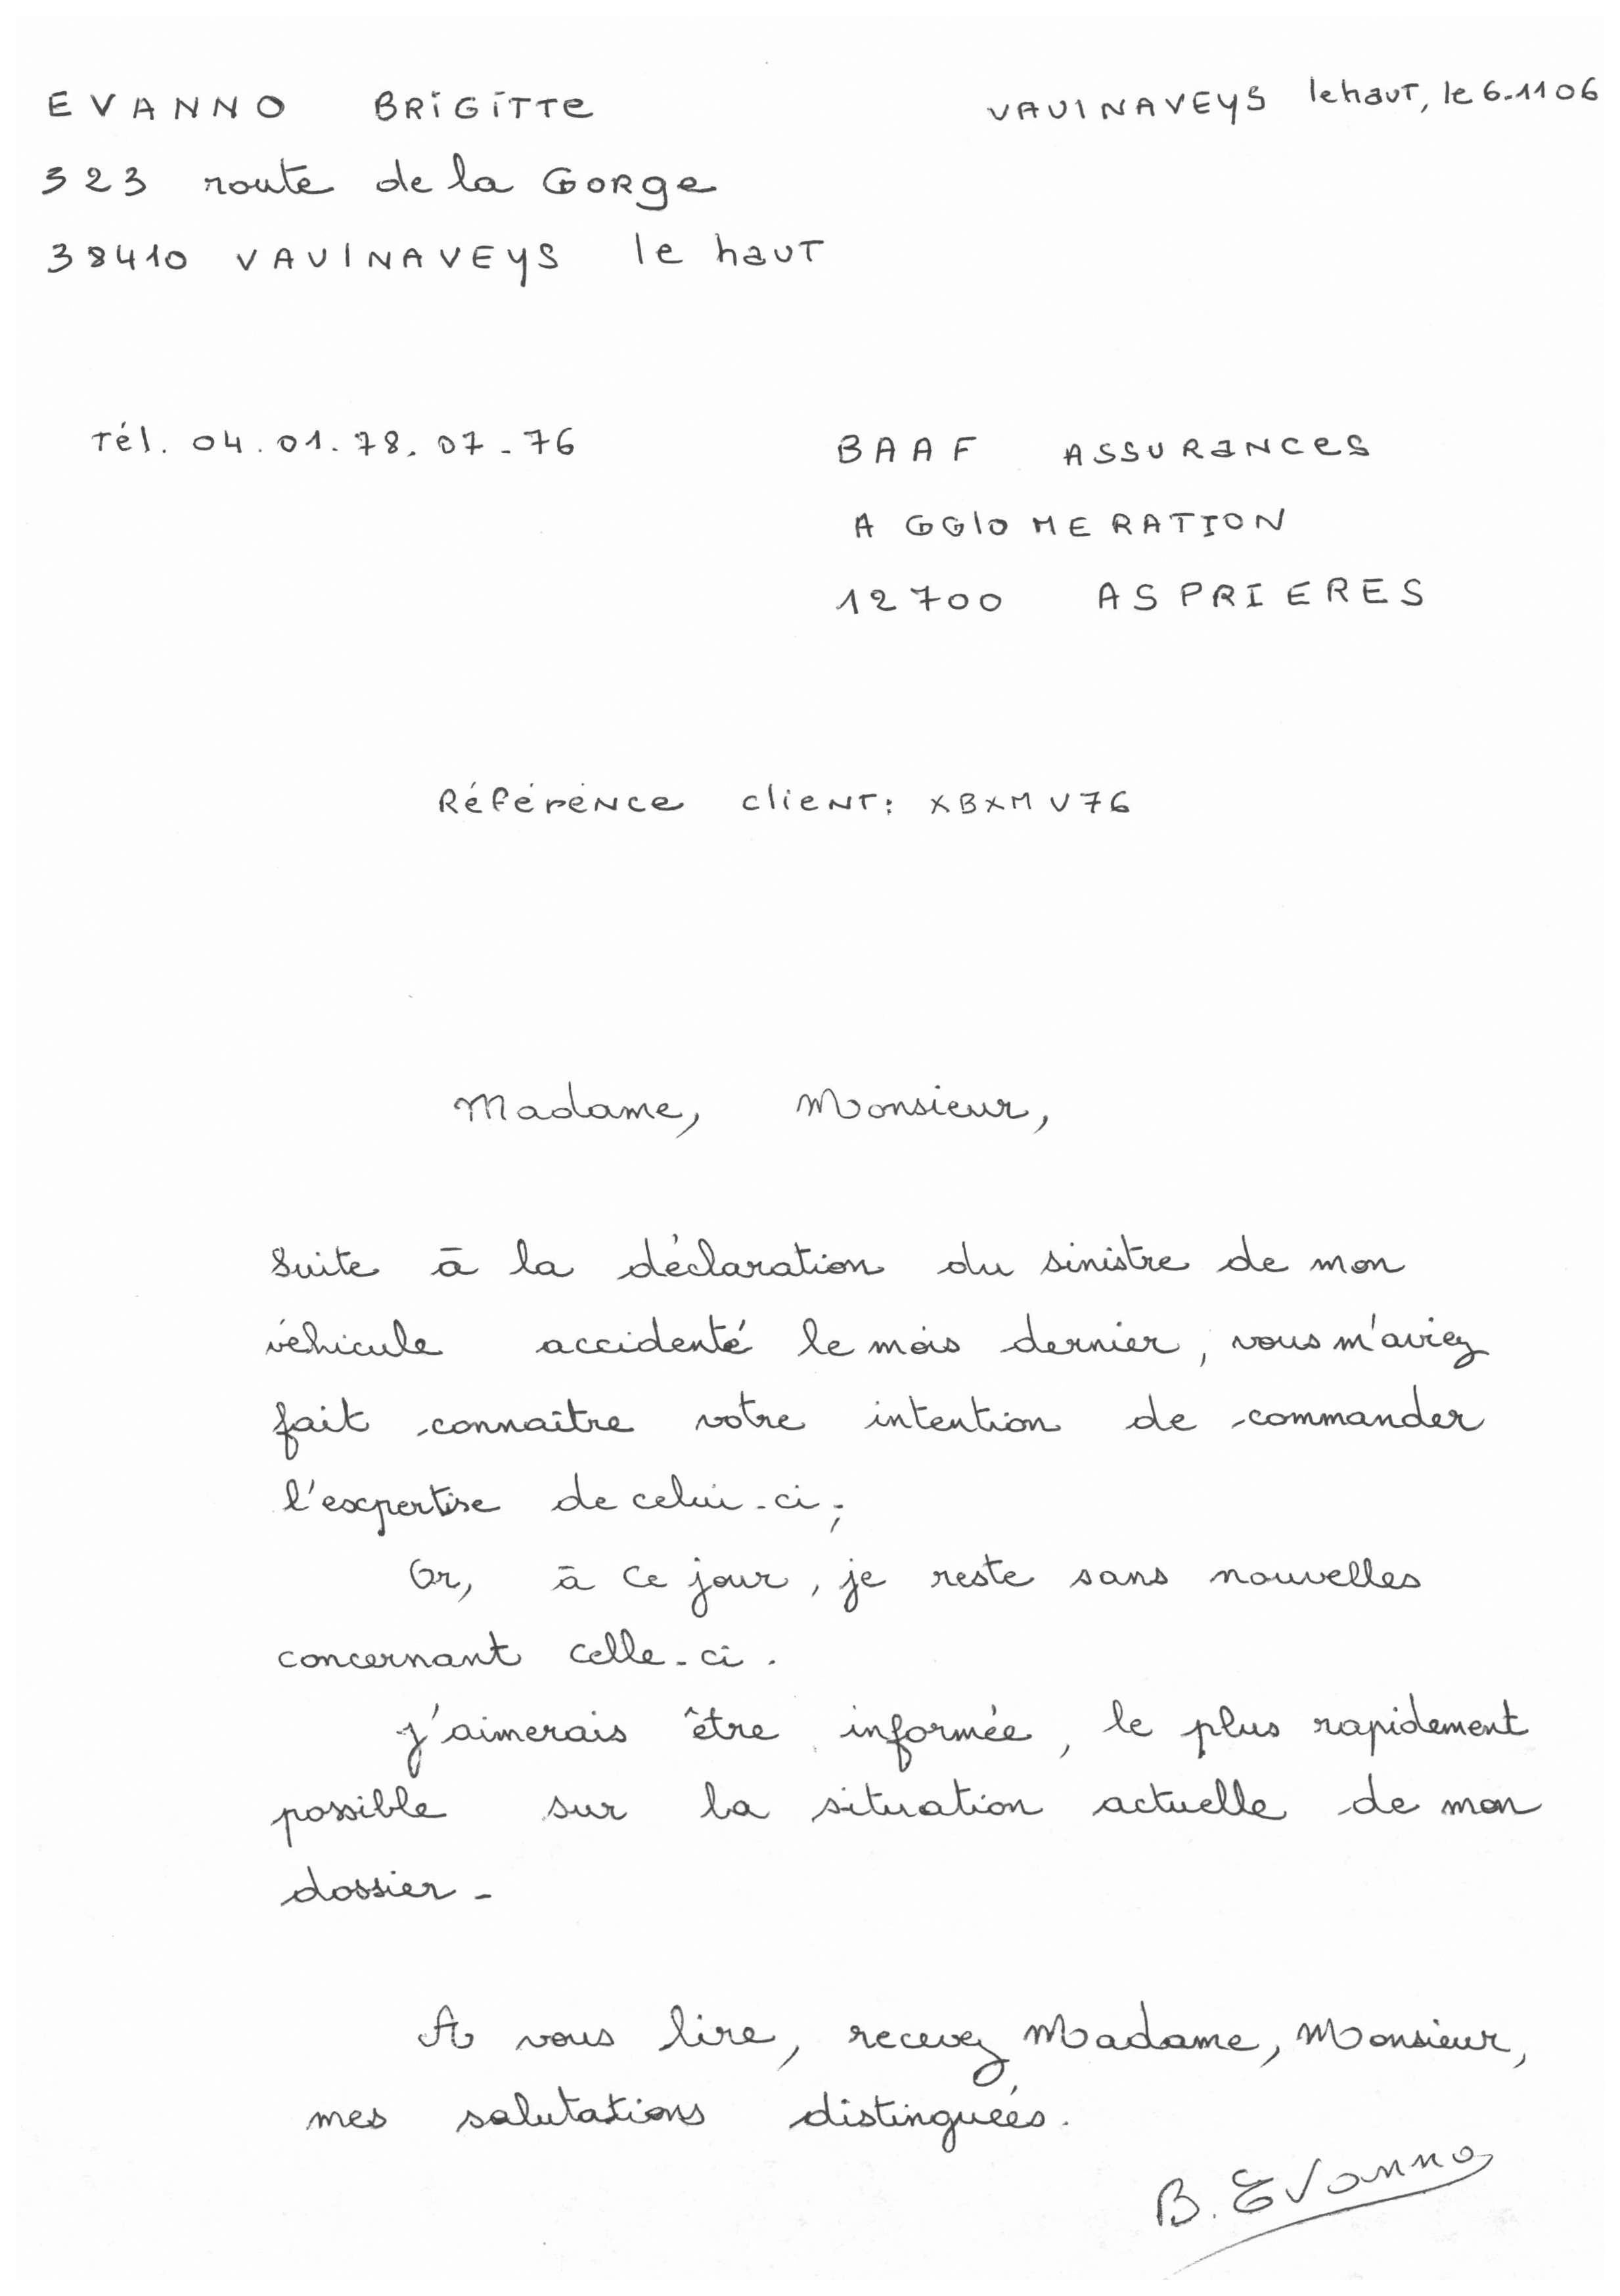 EVANNO BRIGITTE
VAUINAVEYS le haut, le 6.11 06
323 route de la Gorge
38410 VAUINAVEYS le haut
Tél. 04.01.78.07-76
BAAF ASSURANCES
AGGLOMERATION
12700 ASPRIERES
Référence client: XBXMV76
Madame, Monsieur,
Suite à la déclaration du sinistre de mon
véhicule accidenté le mois dernier, vous m'aviez
fait connaître votre intention de commander
l'expertise de celui-ci;
Or, à ce jour, je reste sans nouvelles
concernant celle-ci.
J'aimerais être informée, le plus rapidement
possible sur la situation actuelle de mon
dossier-
A vous lire, recevez Madame, Monsieur,
mes salutations distinguées.
B. Evanno